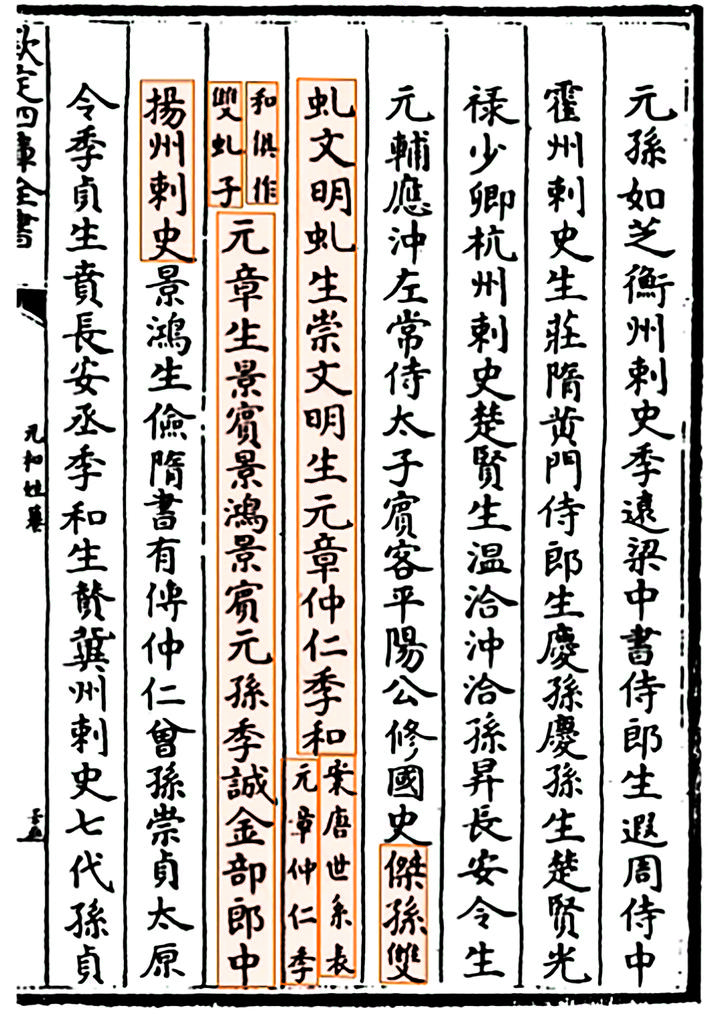 元孫如芝衡州刺史季遠梁中書侍郎生遐周侍中
霍州刺史生莊隋黄門侍郎生慶孫慶孫生楚賢光
禄少卿杭州刺史楚賢生温洽沖洽孫昇長安令生
元輔應沖左常侍太子賓客平陽公修國史傑孫雙
虬文明虬生崇文明生元章仲仁季和案唐世系表元章仲仁季
和俱作雙虬子元章生景賓景鴻景賓元孫季誠金部郎中
揚州刺史景鴻生儉隋書有傳仲仁曾孫崇貞太原
令季貞生賁長安丞季和生贊冀州刺史七代孫貞
欽定四庫全書
元和姓纂